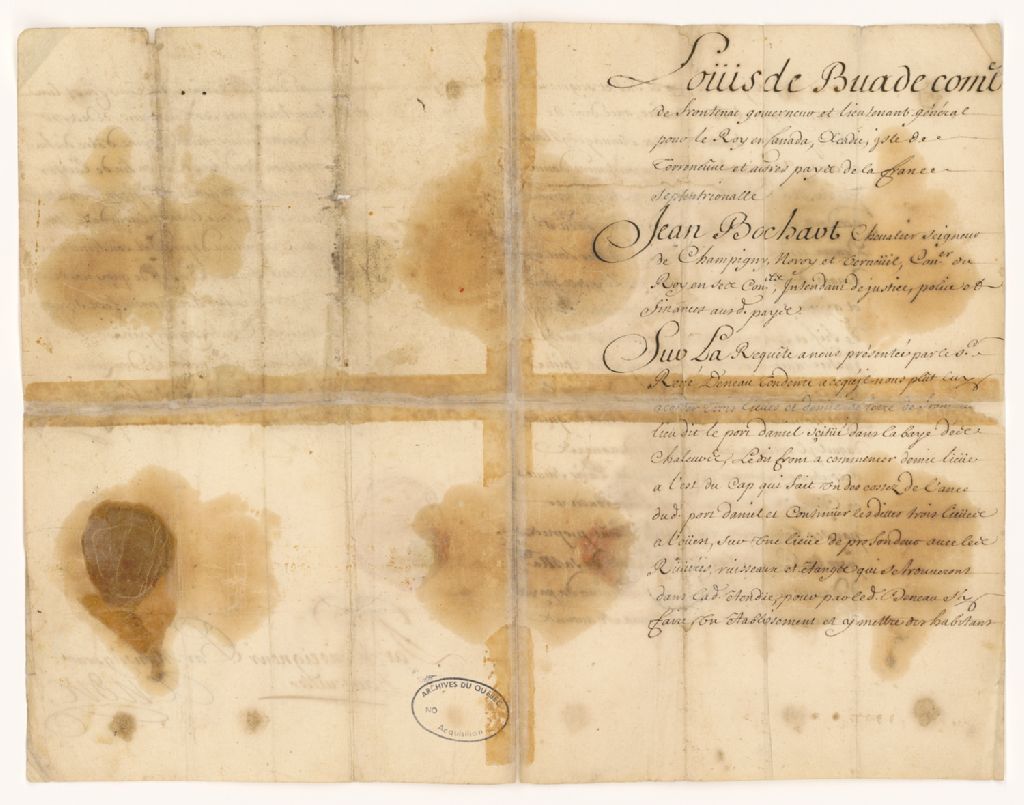 Loüis de Buade comte
de frontenac gouverneur et lieutenant général
pour le Roy en Canada, Acadie, isle de
Terreneuve et autres payis de la france
septentrionalle
Jean Bochart Chevalier seigneur
de Champigny, Noroy et Verneüil, Coner du
Roy en ses Conls, Intendant de justice, police et
finances aud. payis
Sur La Requête a nous présentée par le Sr
René Deneau tendente a ce qu'il nous plût luy
acorder trois lieües et demie de terre de front au
lieu dit le port daniel scitué dans la baye des
Chaleurs, Ledit front a commencer demie lieüe
a l'est du Cap qui fait un des costez de l'ance
dud. port daniel et Continuer lesdittes trois lieües
a l'oüest, sur une lieüe de profondeur avec les
Rivieres, ruisseaux et étangs qui se trouveront
dans lad. étendüe, pour par led. Sr Deneau y
faire son établissement et y mettre des habitans
ARCHIVES DU QUÉBEC
NO
Acquisition